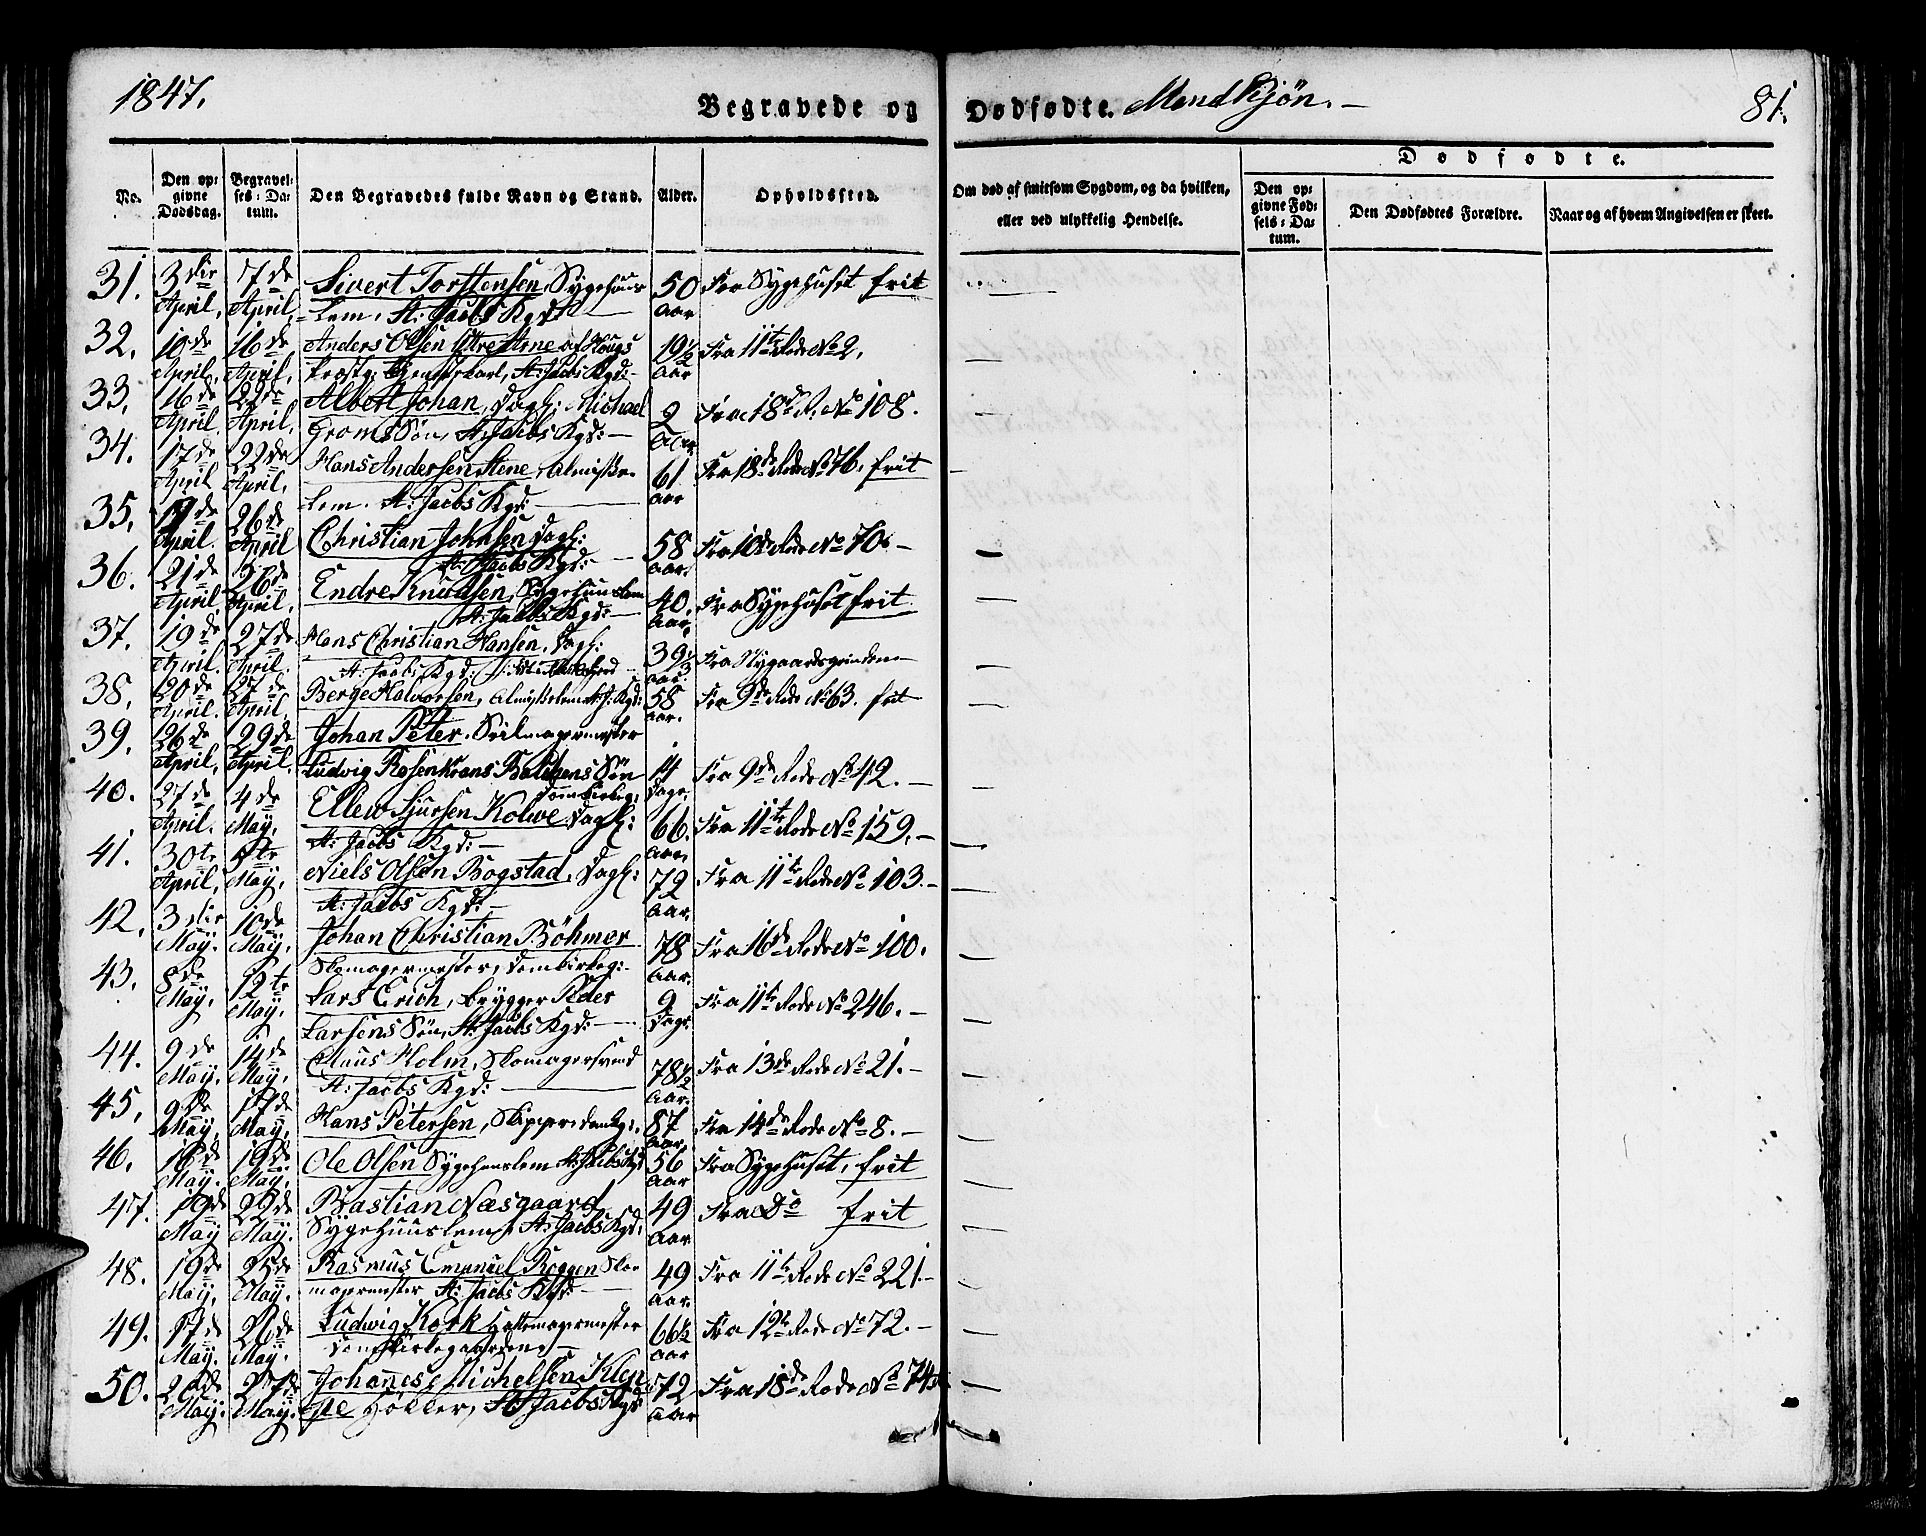 1847.
Begravede og Dødfødte. Mandkjøn. —
81.
No.
Den opgivne Dødsdag.
Begravelses-Datum.
Den Begravedes fulde Navn og Stand.
Alder.
Opholdssted.
Om død af smitsom Sygdom, og da hvilken, eller ved ulykkelig Hendelse.
Dødfødte.
Den opgivne Fødsels-Datum.
Den Dødfødtes Forældre.
Naar og af hvem Angivelsen er skeet.
31. 3die 7de Sivert Torstensen, Sygehuus 50 Fra Sygehuset frit
April, April, lem, St: Jacobs Kgd: — Aar
32. 10de 16de Anders Olsen Arne af Hougs 19½ Fra 11te Rode No 2.
April, April, Præstg: St: Jacobs Kgd: — Aar
33. 16de 22de Albert Johan, Dagl: Michael 2 Fra 18de R. No 108.
April, April, Groms Søn, St: Jacobs Kgd: — Aar
34. 17de 22de Hans Andersen Stene, Almisse 61 Fra 18de Rode No 76. frit
April April, lem. St: Jacobs Kgd: — Aar
35. 19de 26de Christian Johnsen Dagl: 58 Fra 10de Rode No 70. —
April. April St: Jacobs Kgd: — Aar.
36. 21de 26de Endre Knudsen, Sygehuuslem 40. Fra Sygehuset frit
April, April, St: Jacobs Kgd: — Aar,
37. 19de 27de Hans Christian Hansen, Dagl: 39⅓ Fra Nygaardsgrinden
April. April. St: Jacobs Kgd: Aar.
38. 20de 27de Berge Halvorsen, Almisselem St: J: Kgd: 58 Fra 9de Rode No 63. frit
April. April. Aar.
39. 26de 29de Johan Peter. Seilmagermester
April, April. Ludvig Rosenkrans Balchens Søn 14 Fra 9de Rode No 42. —
Domkirkeg: Dage,
40. 27de 4de Ellew Sjursen Kolwe, Dagl: 66. Fra 11te Rode No 159. —
April. May. St: Jacobs Kgd: — Aar,
41. 30te 7de Niels Olsen Bogstad, Dagl: 72 Fra 11te Rode No 103. —
April, May, St: Jacobs Kgd: — Aar.
42. 3die 10de Johan Christian Böhmer 78 Fra 16de Rode No 100.
May. May, Skomagermester, Domkirkeg: Aar.
43. 8de 12te Lars Erich, Brygger Peder 9 Fra 11te Rode No 246. —
May. May, Larsens Søn, St: Jacobs Kgd: — Dage
44. 9de 14de Claus Holm, Skomagersvend 78½ Fra 13de Rode No 21. —
May. May, St: Jacobs Kgd: — Aar.
45. 9de 17de Hans Petersen, Skipper, domkg: 87 Fra 14de Rode No 8. —
May, May, Aar,
46. 16de 19de Ole Olsen Sygehuuslem St: Jacobs Kgd 56 Fra Sygehuset, frit
May. May. Aar
47. 19de 22de Bastian Næsgaard, 49 Fra Do frit
May May. Sygehuuslem, St: Jacobs Kgd: Aar
48. 19de 25de Rasmus Emanuel Roggen Sko 49 Fra 11te Rode No 221. —
May, May. magermester St: Jacobs Kgd: — Aar.
49. 17de 26de Ludwig Kork Hattemagermester 66½ Fra 12te Rode No 72. —
May. May. Domkirkegaarden — Aar
50. 20de 27de Johanes Michelsen Klep 72 Fra 18de Rode No 74
May. May. pe Høker, St: Jacobs Kgd: Aar